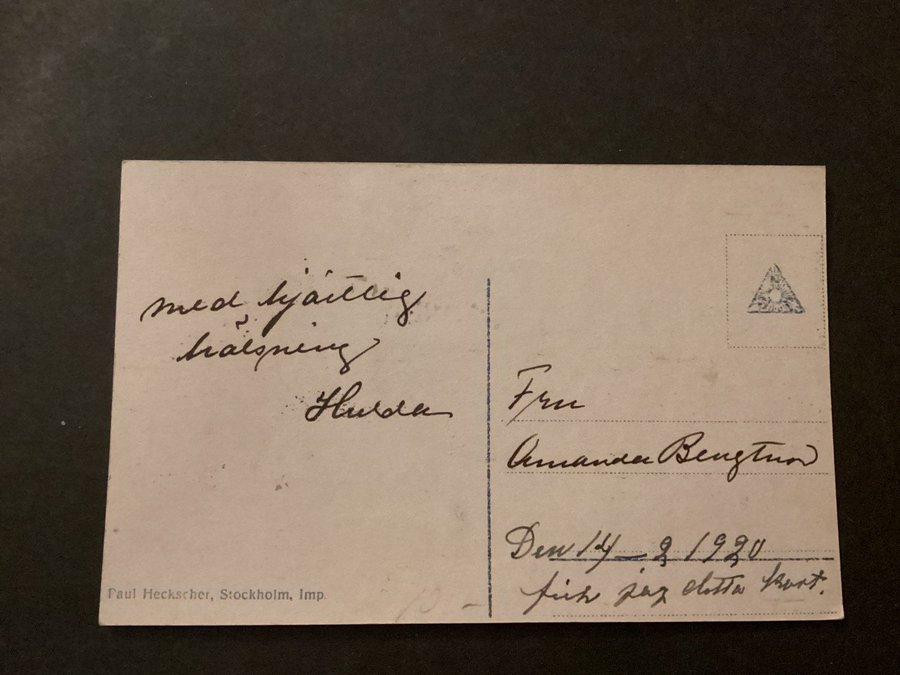 med hjärtlig
hälsning
Hulda
Fru
Amanda Bengtson
Den 14 - 2 1920
fick jag detta kort.
Paul Heckscher, Stockholm, Imp.